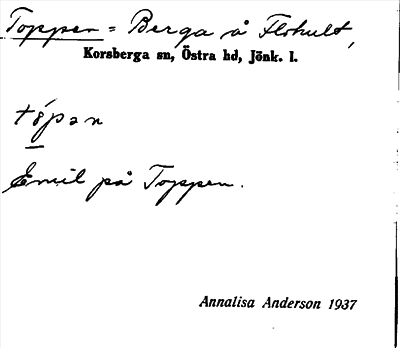 Toppen = Berga å Flohult,
Korsberga sn, Östra hd, Jönk. l.
Emil på Toppen.
Annalisa Anderson 1937